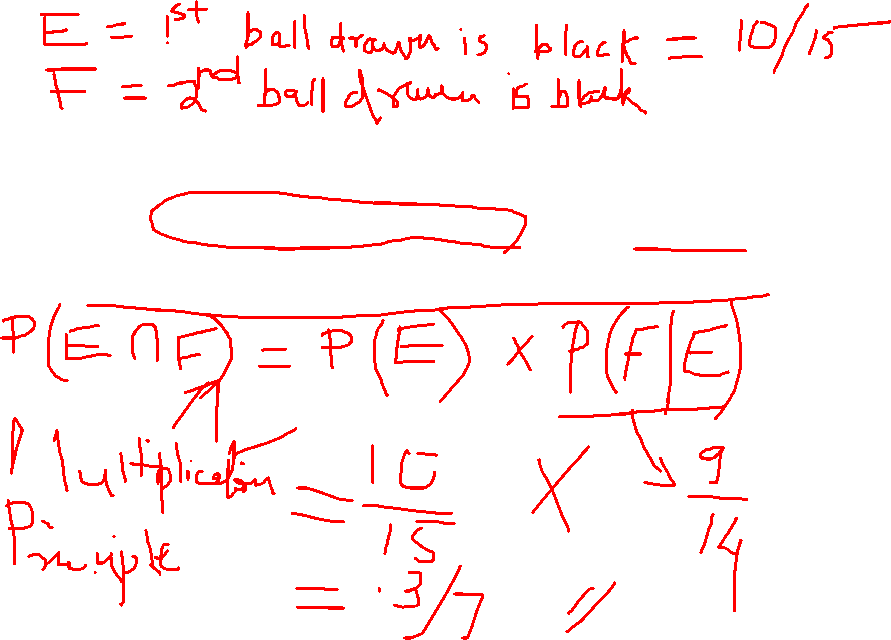 E = 1st ball drawn is black = 10/15
F = 2nd ball drawn is black
P(E ∩ F) = P(E) × P(F|E)
Multiplication = 10/15 × 9/14
Principle
= 3/7 //